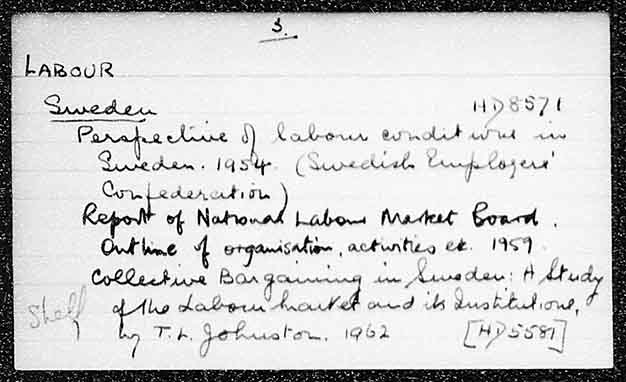 S.
LABOUR
Sweden HD8571
Perspective of labour conditions in
Sweden. 1954. (Swedish Employers'
Confederation)
Report of National Labour Market Board.
Outline of organisation, activities etc. 1959.
Collective Bargaining in Sweden: A Study
Shelf of the Labour Market and its Institutions,
by T.L. Johnston. 1962 [HD5581]